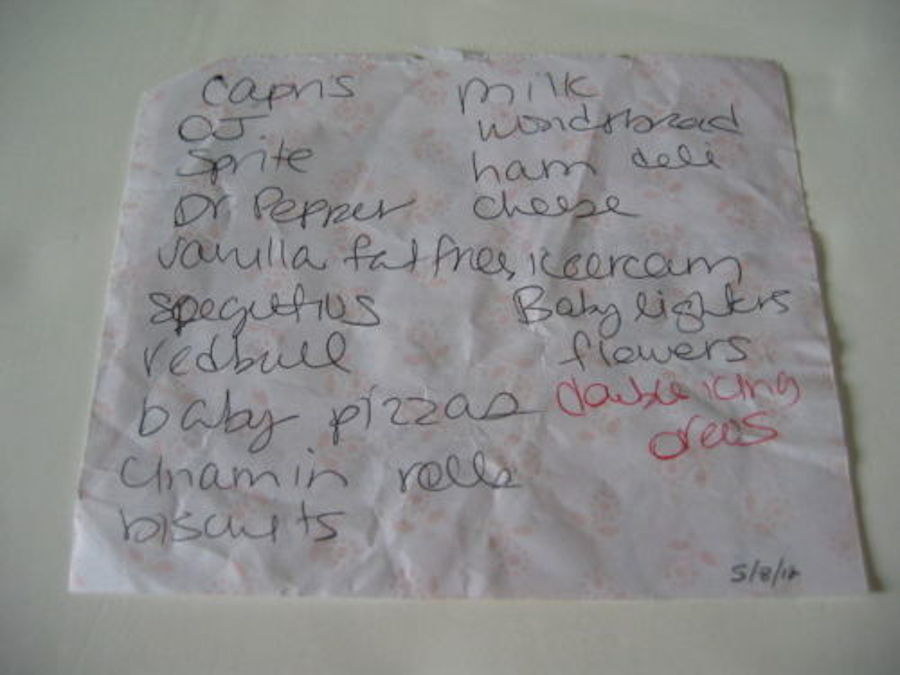 Capris
OJ
Sprite
Dr Pepper
vanilla fat free icecream
speguttius
redbull
baby pizzas
Cinamin rolls
biscuits
milk
wondrbread
ham deli
cheese
Baby lighters
flowers
double icing
oreos
5/8/12